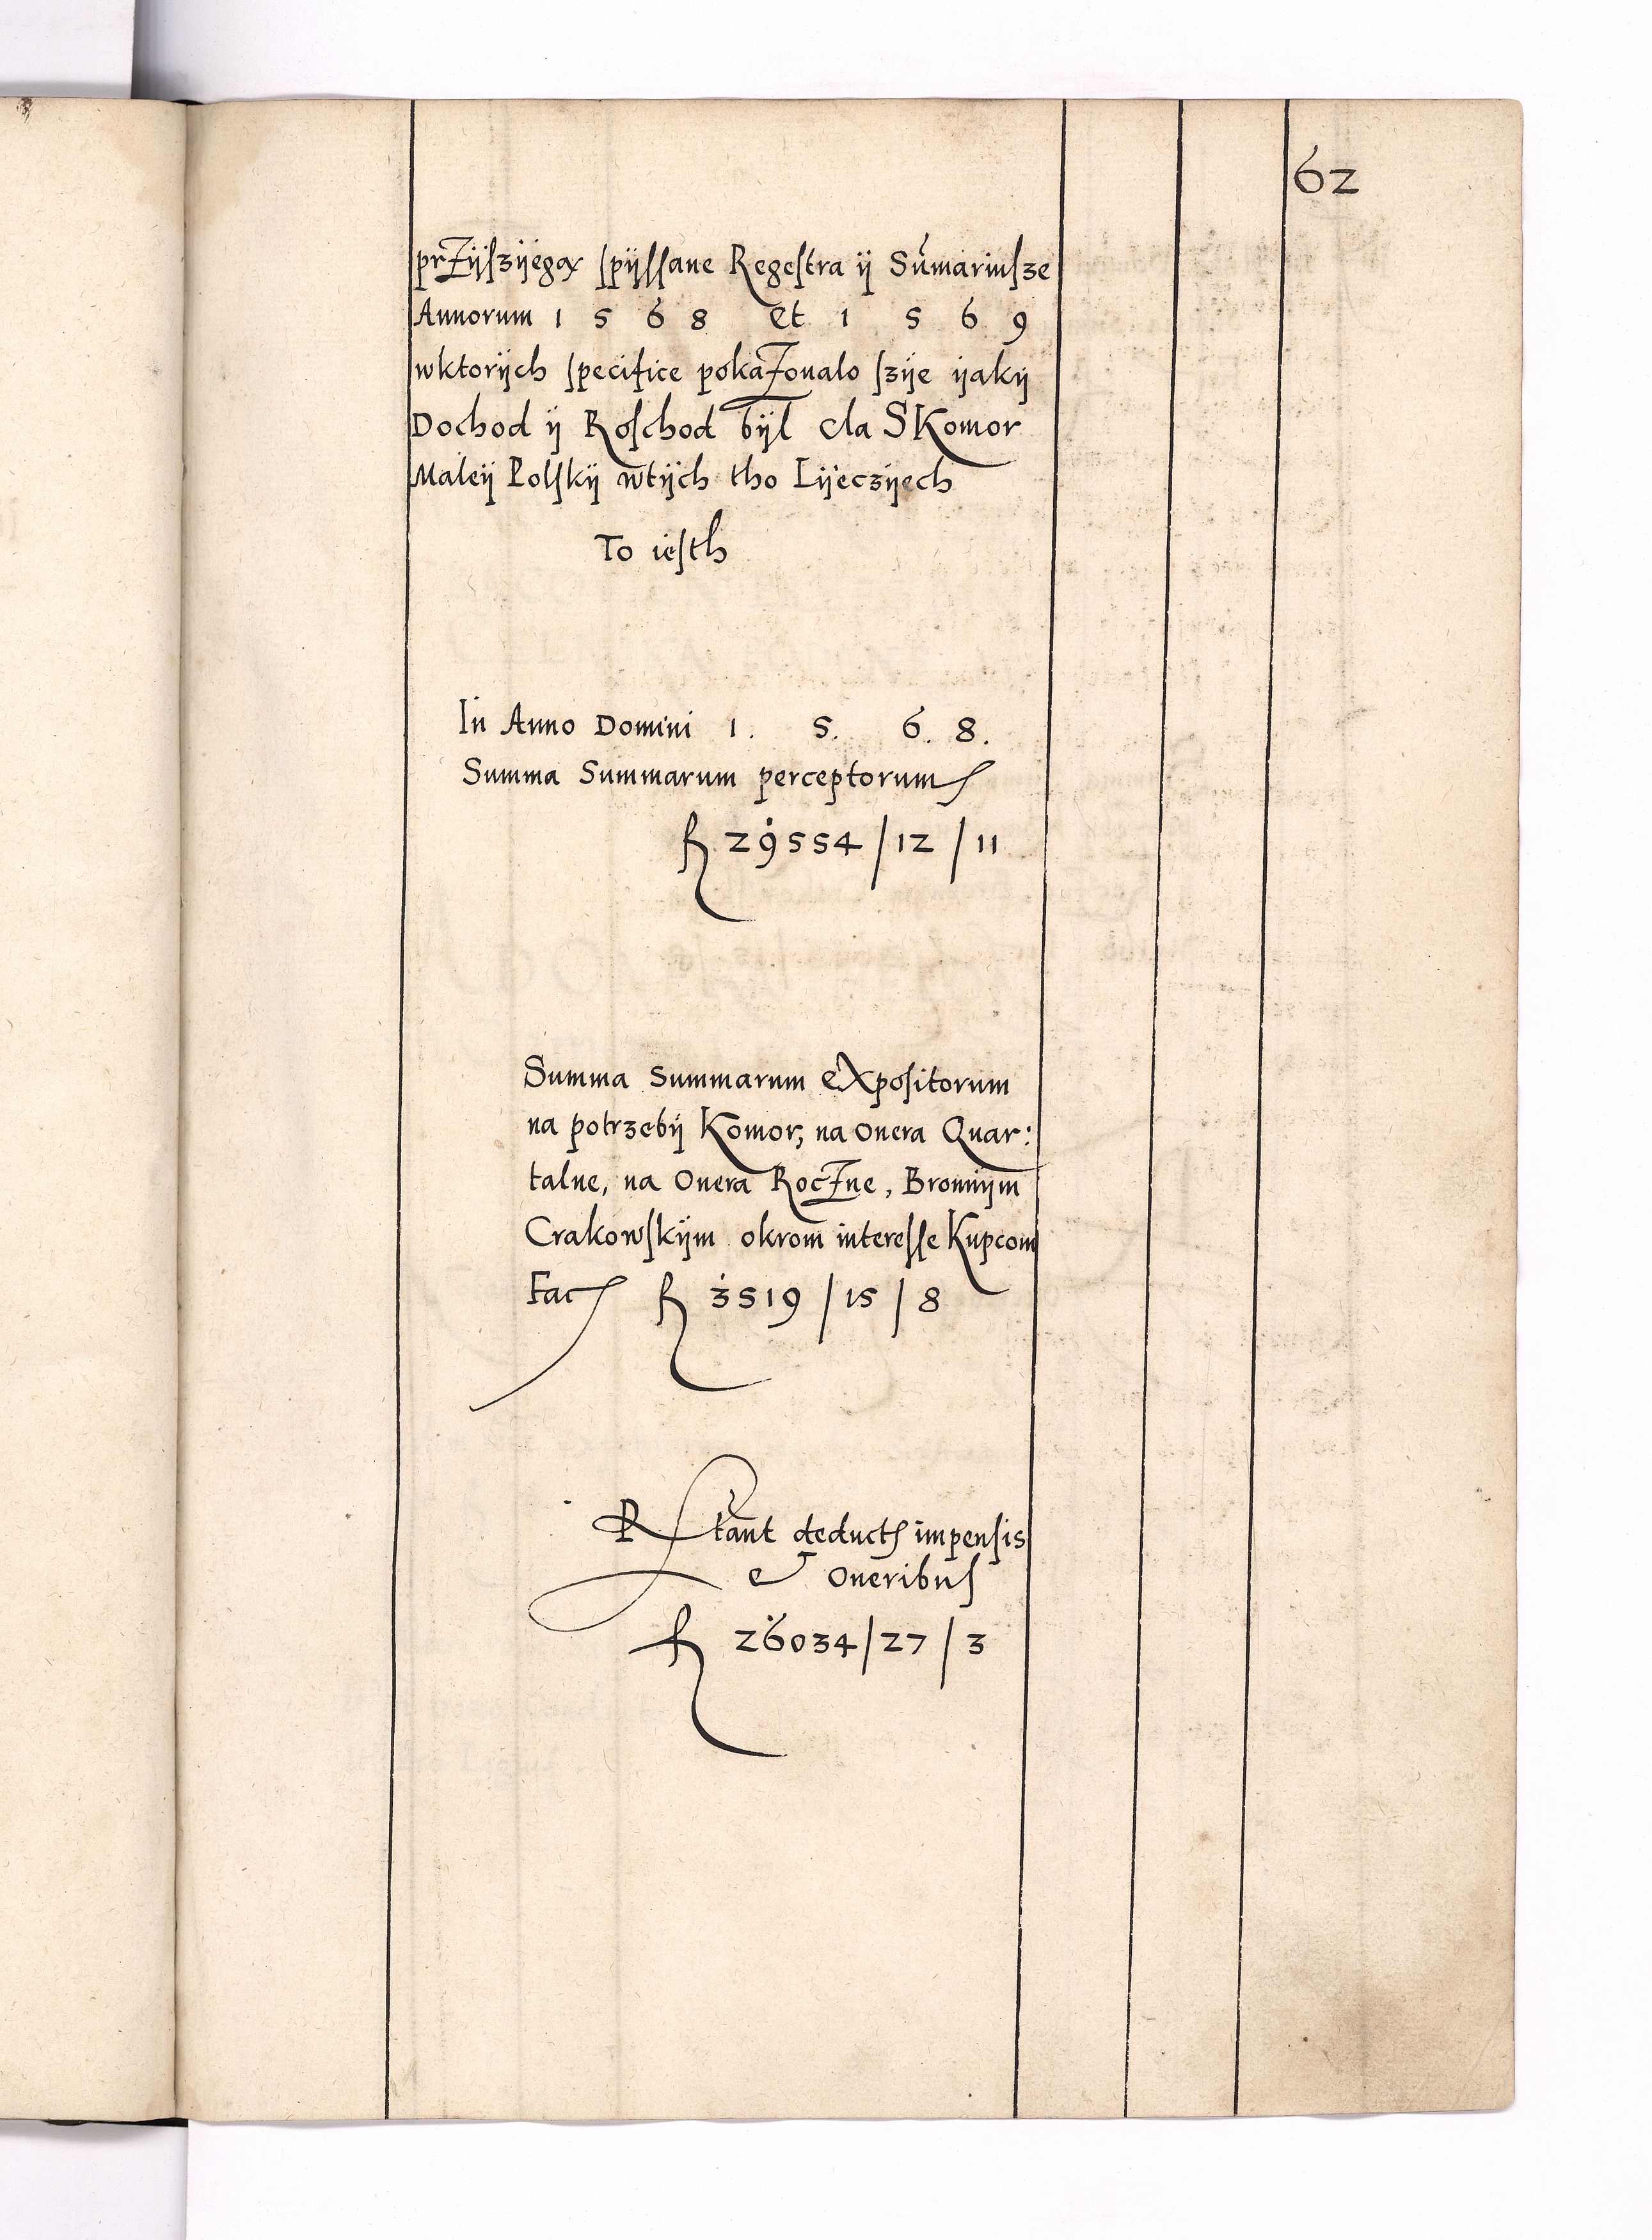 62
przÿszÿegą spÿssane Regestra ÿ Sumariusze
Annorum 1 5 6 8 et 1 5 6 9
wktorÿch specifice pokazonalo szÿe ÿakÿ
Dochod ÿ Roschod bÿl cla SKomor
Maleÿ Polskÿ wtÿch tho Lÿeczÿech
To iesth
In Anno Domini 1. 5. 6. 8.
Summa Summarum perceptorum
fl 29554/12/11
Summa summarum eXpositorum
na potrzebÿ Komor, na onera Quar:
talne, na Onera Roczne, Bronnÿm
Crakowskÿm okrom interesse Kupcom
Fac fl 3519/15/8
Restant deductis impensis
et Oneribus
fl 26034/27/3